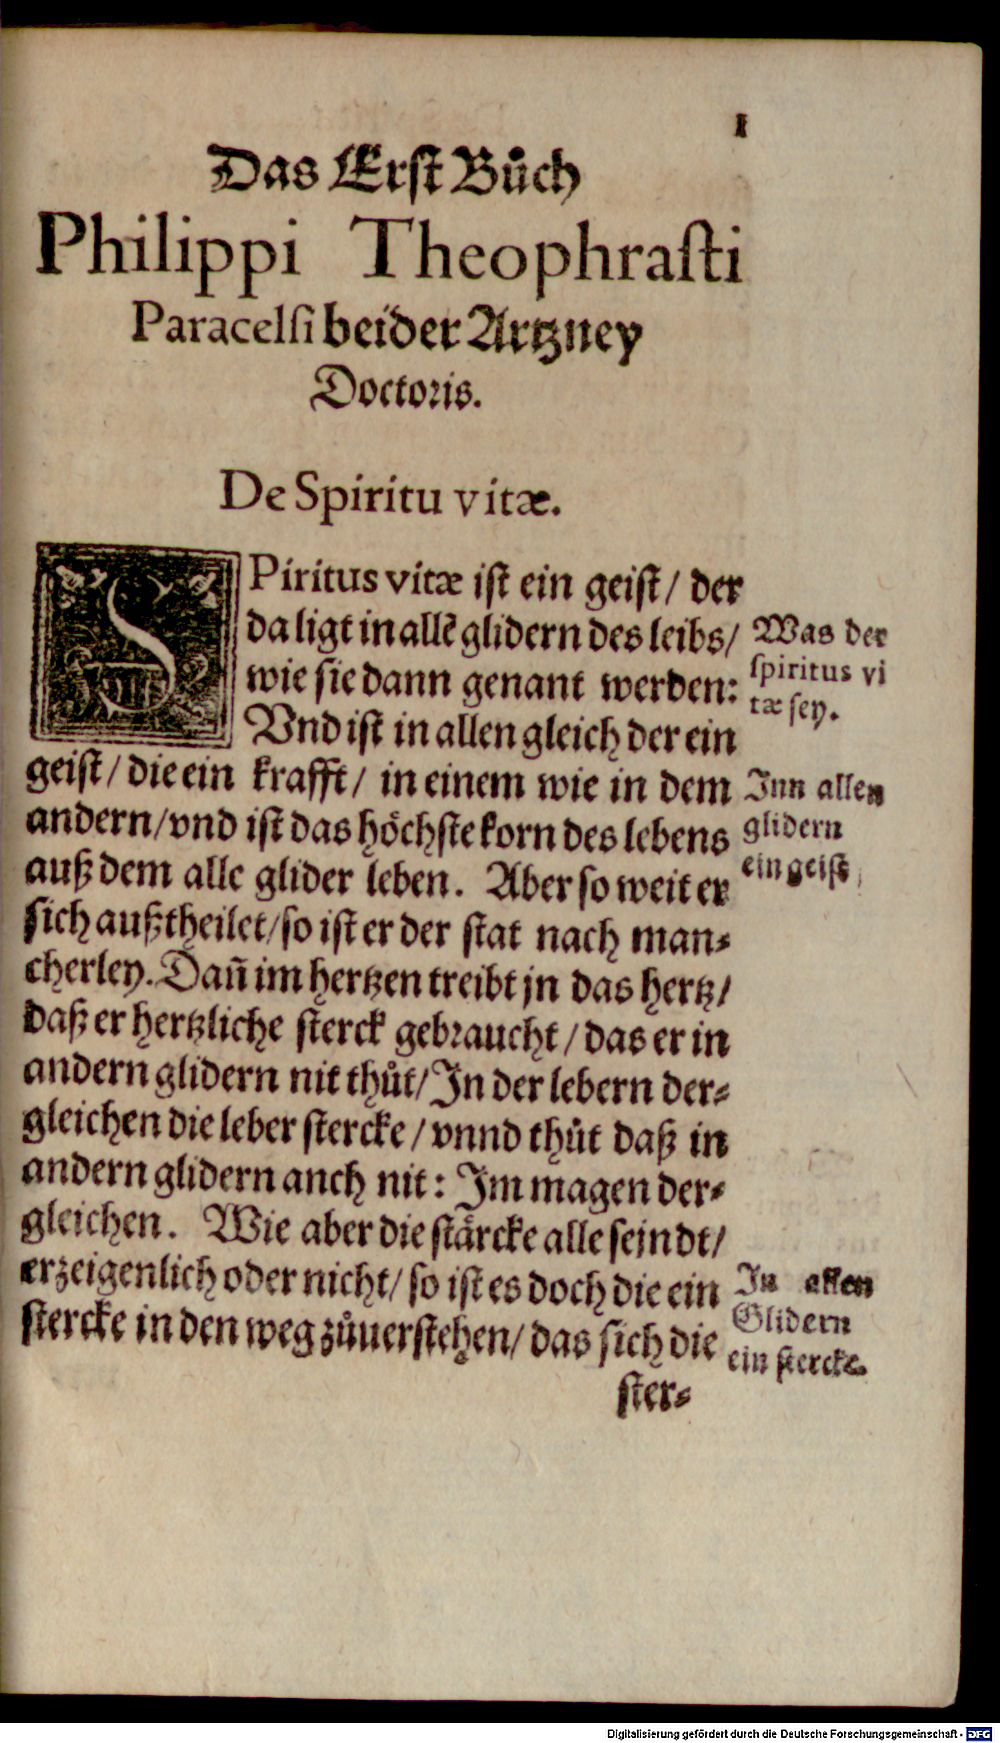 1
Das Erst Bůch
Philippi Theophraſti
Paracelſi beider Artzney
Doctoris.
De Spiritu vitæ.
SPiritus vitæ iſt ein geiſt/ der
da ligt in allẽ glidern des leibs/
wie ſie dann genant werden:
Vnd iſt in allen gleich der ein
geiſt/ die ein krafft/ in einem wie in dem
andern/vnd iſt das höchſte korn des lebens
auß dem alle glider leben. Aber ſo weit er
ſich außtheilet/ſo iſt er der ſtat nach man⸗
cherley. Dañ im hertzen treibt jn das hertz/
daß er hertzliche ſterck gebraucht/ das er in
andern glidern nit thůt/ In der lebern der⸗
gleichen die leber ſtercke/ vnnd thůt daß in
andern glidern anch nit: Im magen der⸗
gleichen. Wie aber die ſtärcke alle ſeindt/
erzeigenlich oder nicht/ ſo iſt es doch die ein
ſtercke in den weg zůuerſtehen/ das ſich die
ſter⸗
Was der
ſpiritus vi
tæ ſey.
Inn allen
glidern
ein geiſt
In allen
Glidern
ein ſtercke.
Digitalisierung gefördert durch die Deutsche Forschungsgemeinschaft - DFG